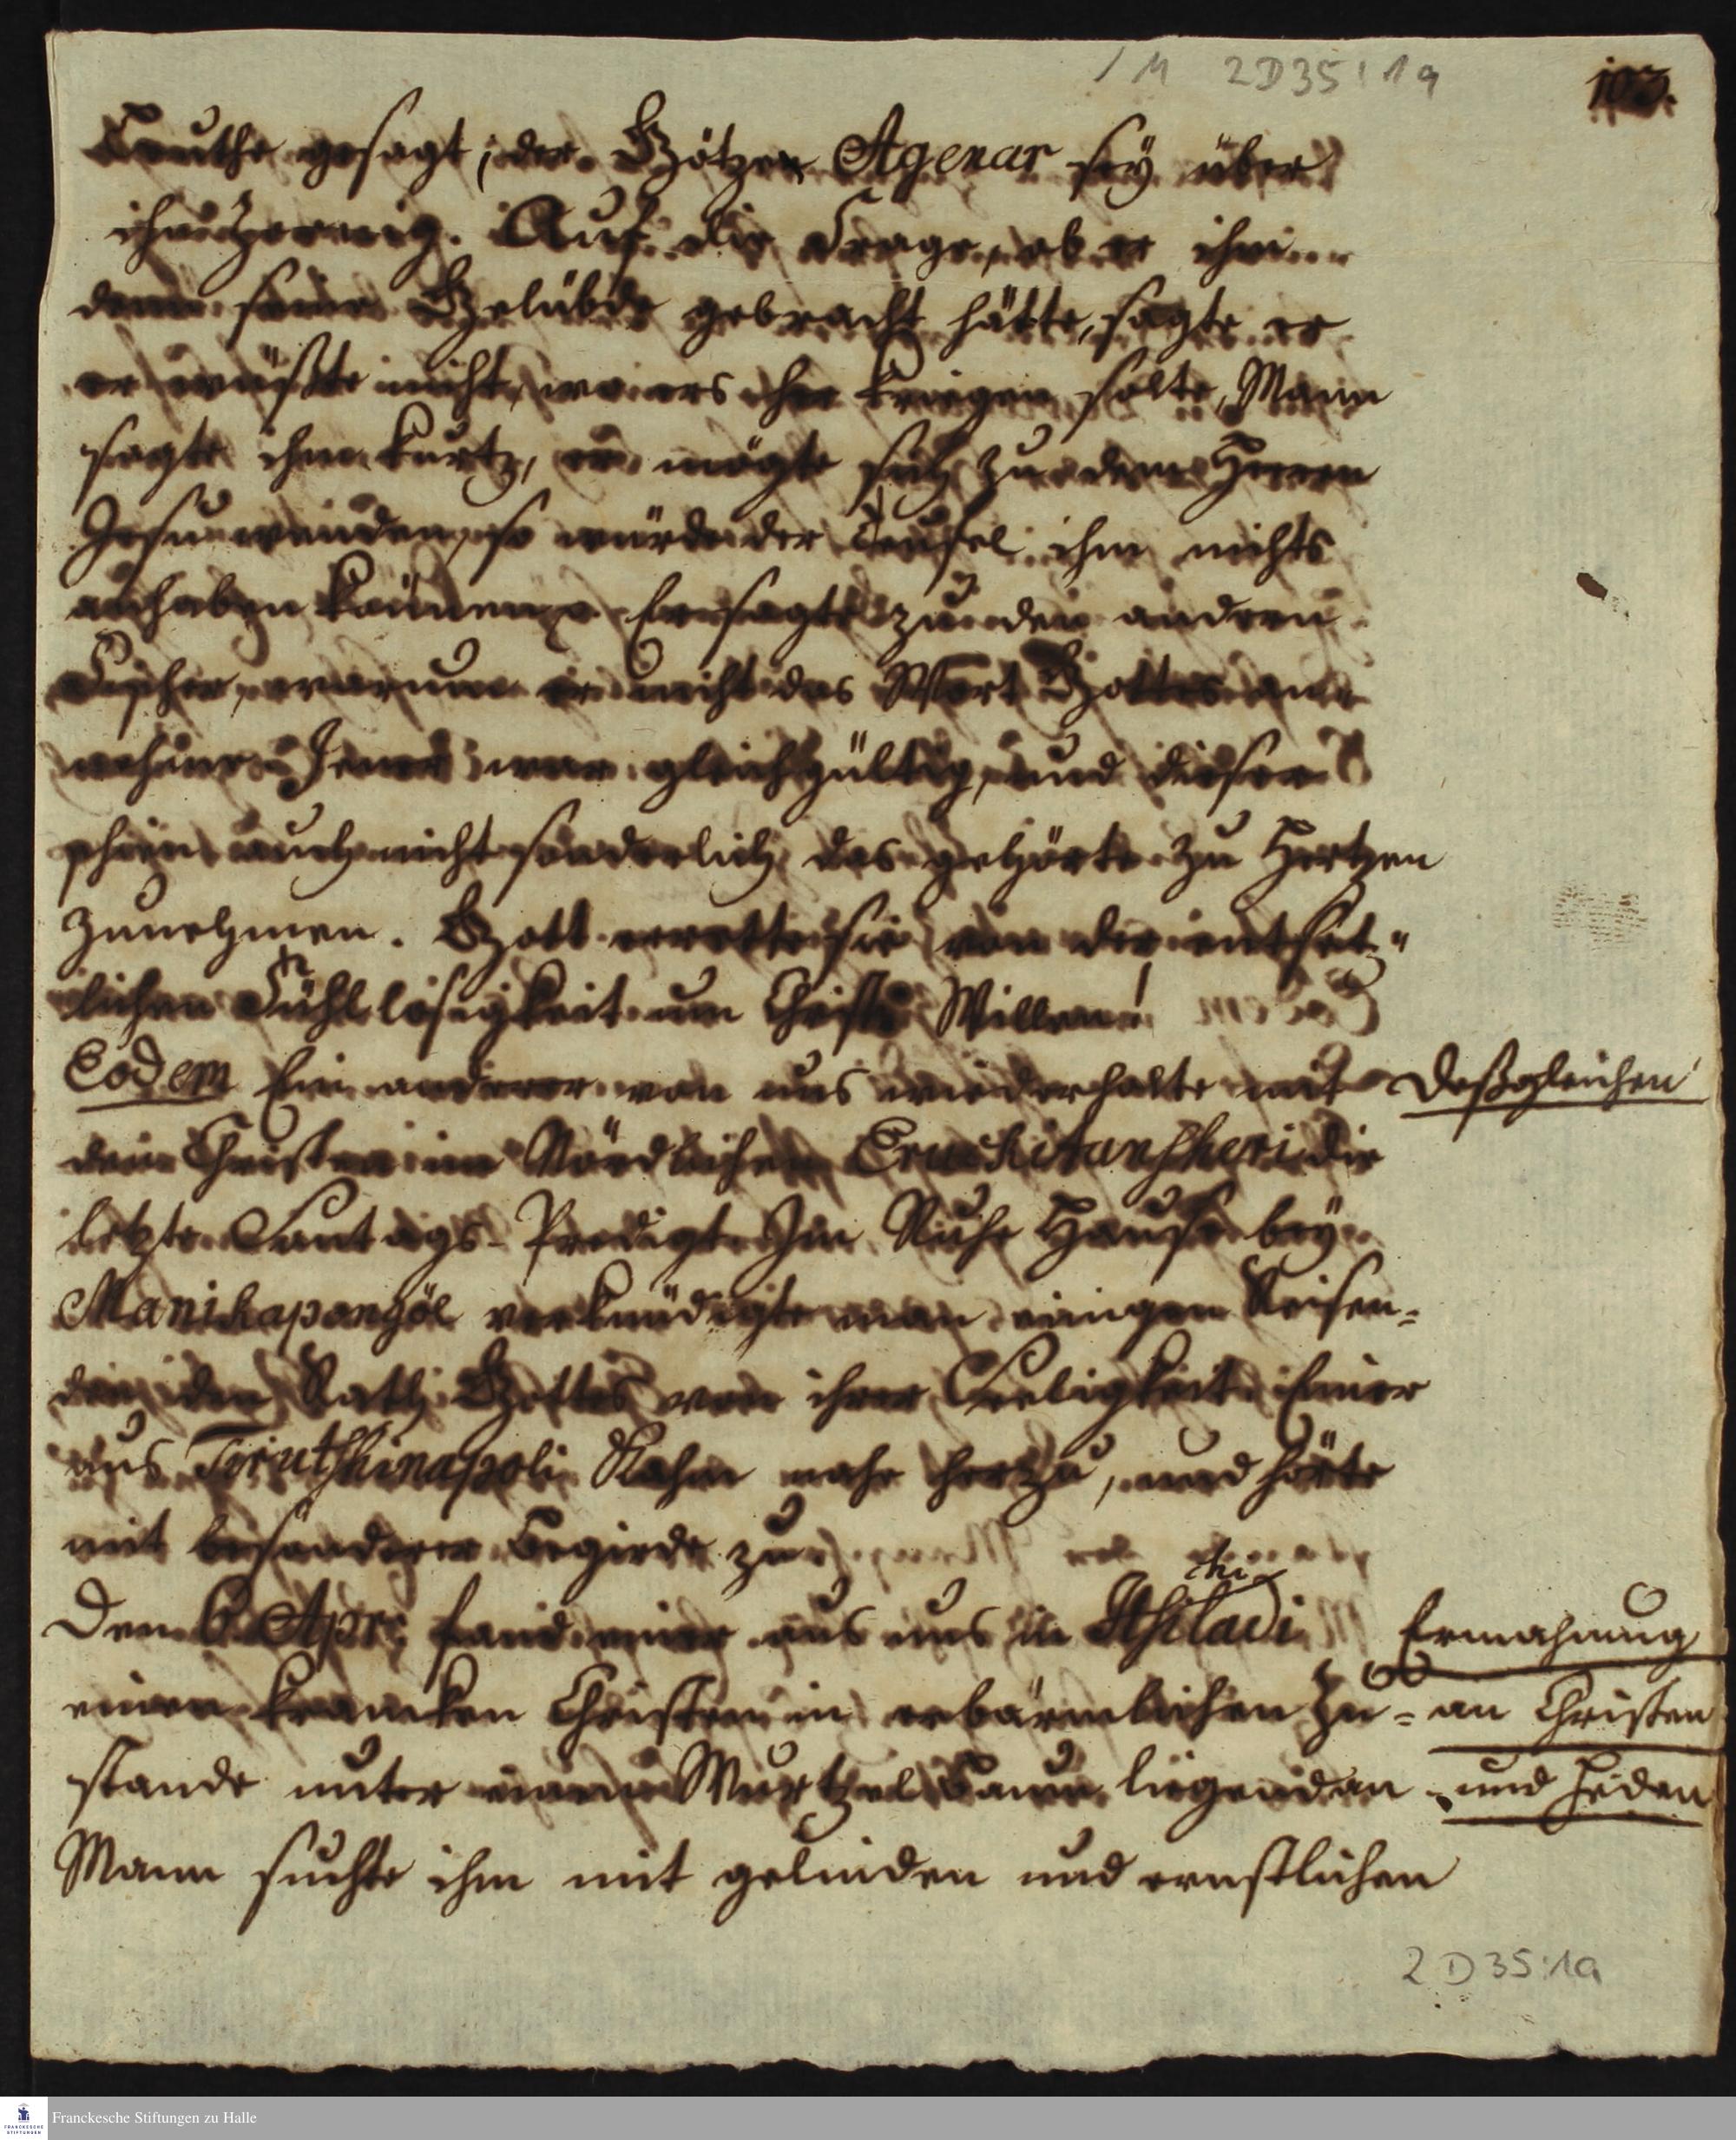 1 M 2D35:1a
103.
Leuthe gesagt, der Götzen Agenar sey über
ihn zornig. Auf die Frage, ob er ihm
denn seine Gelübde gebracht hätte, sagte er
er wüßte nicht, wo ers her kriegen solte, Mann
sagte ihm kurtz, er mögte sich zu dem Herrn
Jesu wenden, so würde der Teufel ihm nichts
anhaben können. Er sagte zu den andern
Fischer, warum er nicht das Wort Gottes an-
nehme. Jener war gleichgültig, und dieser
schien auch nicht sonderlich das gehörte zu Hertzen
zunehmen. Gott errette sie von der entsetz"
lichen Fühllosigkeit um Christi Willen!
Eodem Ein anderer von uns wiederholte mit
deßgleichen
den Christen im Nördlichen die
letzte Sontags-Predigt. Im Ruhe Hause bey
Manikapongöl verkündigte man einigen Reisen-
den den Rath Gottes von ihrer Seeligkeit. Einer
aus Tirutshinapoli Kahm nahe herzu, und hörte
mit besonderer Begierde zu.
Den 6. Apr. fand einer aus uns in
Ermahnung
einen krancken Christen in erbärmlichen Zu-
an Christen
stande unter einem Wurtzel Baum liegend an
und Heiden
Mann suchte ihm mit gelinden und ernstlichen
2 D 35:1a
Franckesche Stiftungen zu Halle